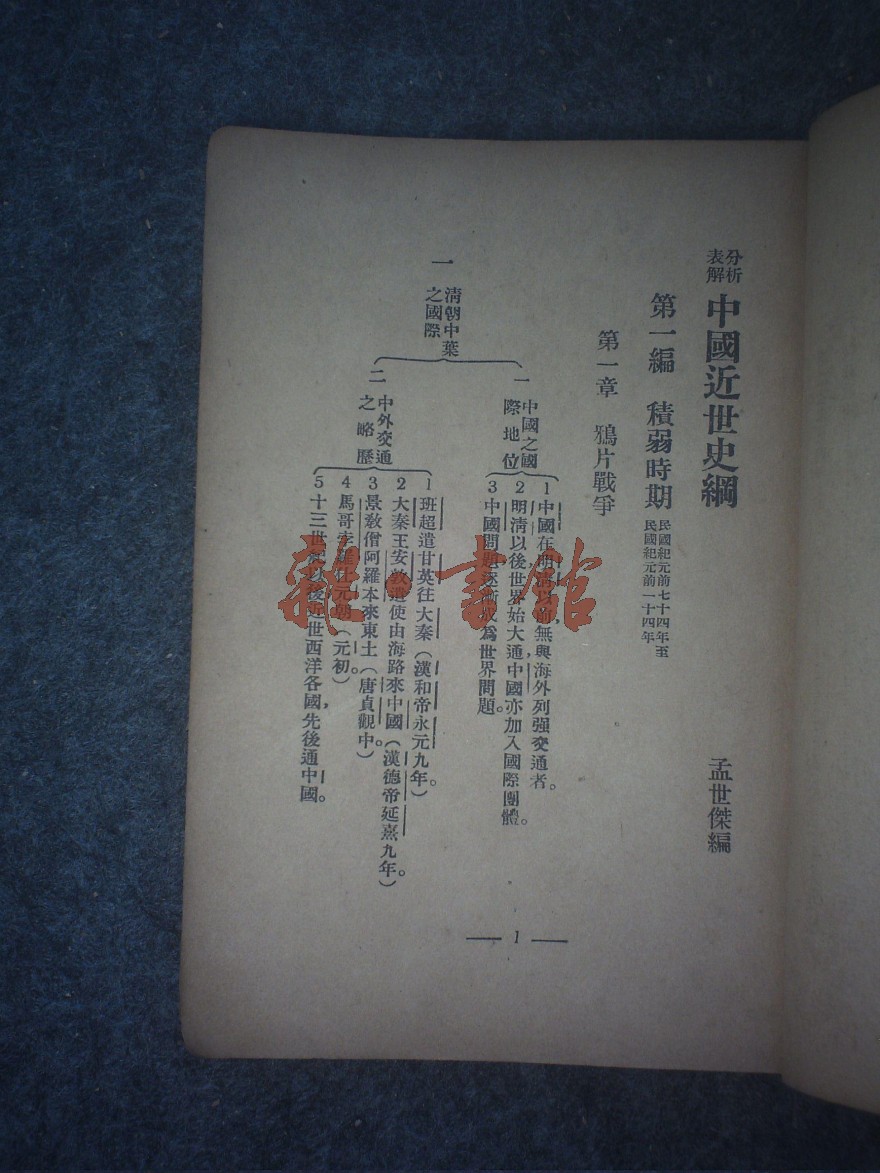 分析
表解
中國近世史綱
孟世傑編
第一編 積弱時期
民國紀元前七十四年至
民國紀元前一十四年
第一章 鴉片戰爭
一
清朝中葉
之國際
一
中國之國
際地位
1中國在明清以前,無與海外列强交通者。
2明清以後,世界始大通,中國亦加入國際團體。
3中國問題逐漸成爲世界問題。
二
中外交通
之略歷
1班超遣甘英往大秦(漢和帝永元九年。)
2大秦王安敦遣使由海路來中國(漢德帝延熹九年。)
3景敎僧阿羅本來東土(唐貞觀中。)
4馬哥孛羅仕元朝(元初。)
5十三世紀以後近世西洋各國,先後通中國。
— 1 —
雜·書館